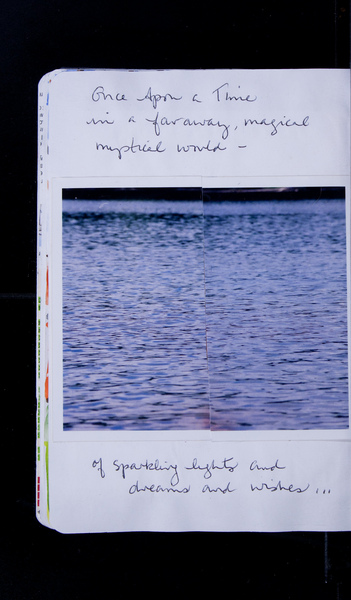 Once Upon a Time
in a faraway, magical
mystical world -
of sparkling lights and
dreams and wishes ...